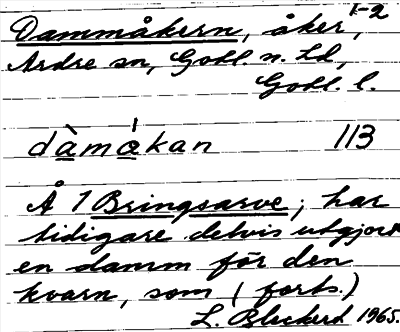 1-2
Dammåkern, åker,
Ardre sn, Gotl. n. hd,
Gotl. l.
dàmåkan 113
Å 1 Bringsarve; har
tidigare delvis utgjort
en damm för den
kvarn, som (forts.)
L. Bleckerd 1965.